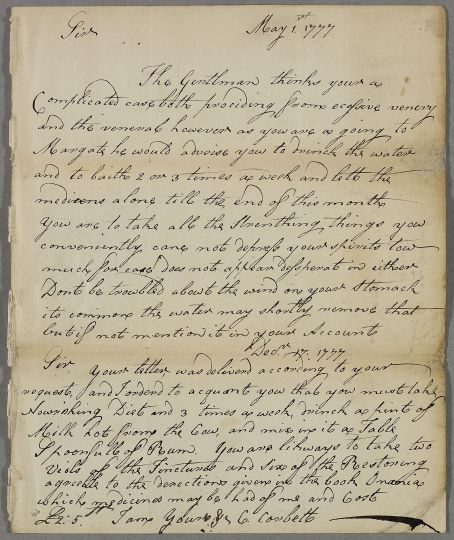 Sir May 1st 1777
The Gentlman thinks your a
Complicated case both prociding from eccessive venery
and the venerale however as you are a going to
Margate he would advise you to drinck the water
and to bathe 2 or 3 times a week and lett the
medicens alone till the end of this month
you are to take all the Strenthing things you
conveniently cane not depress your spirits tow
much for case does not appear desperat in either
Dont be troubled about the wind on your Stomack
its common the water may shortly remove that
but if not mention it in your Account
Decr 17. 1777
Sir your letter was deliverd according to your
request, and I ordend to acquant you that you must take
Nourishing Diet and 3 times a week, drinck a pint of
Milk hot from the Cow, and mix in it a Table
Spoonfull of Rum. You are likways to take two
Viols of the Tinctures and Six of the Restoring
agreable to the derections given in the book Onania
which medicines may be had of me and Cost
£2:5 I am Yours &c C. Corbett